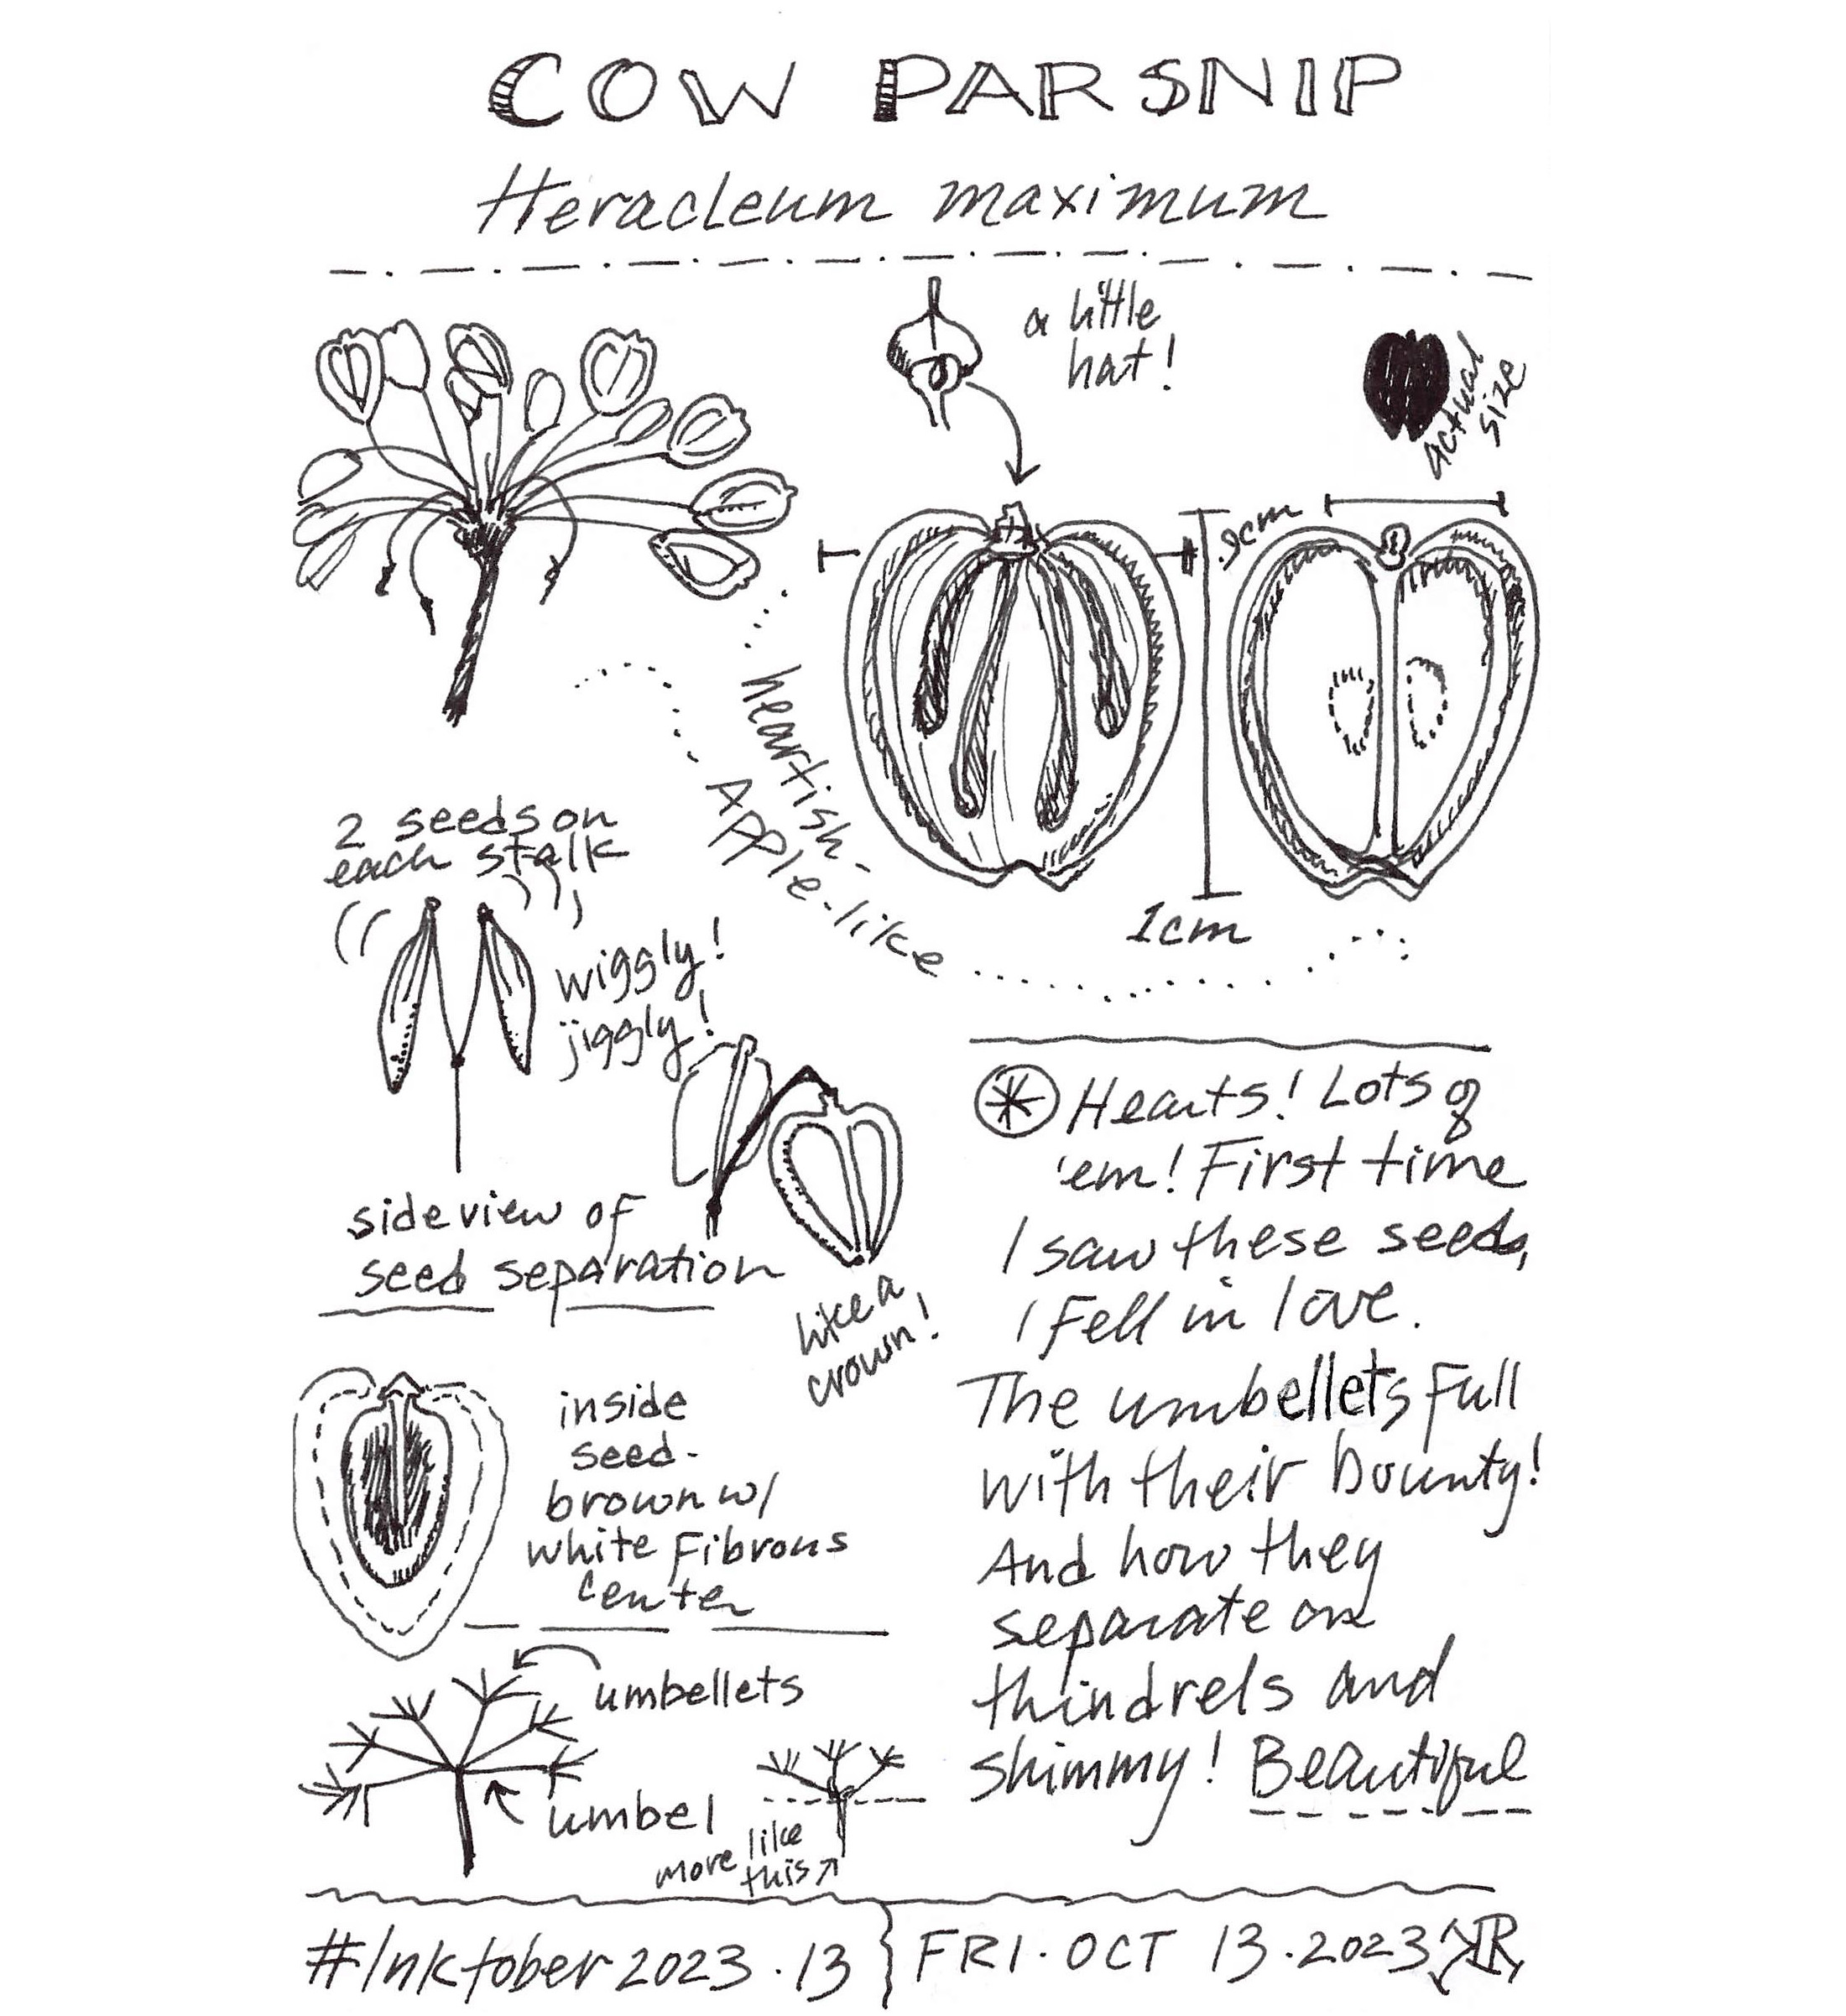 COW PARSNIP
Heracleum maximum
a little
hat!
actual
size
.9cm
1cm
heartish-
Apple-like
2 seeds on
each stalk
wiggly!
jiggly!
side view of
seed separation
like a
crown!
inside
seed-
brown w/
white fibrous
center
umbellets
umbel
more like
this
* Hearts! Lots of
'em! First time
I saw these seeds,
I fell in love.
The umbellets full
with their bounty!
And how they
separate on
thindrels and
shimmy! Beautiful
#Inktober2023.13
FRI.OCT 13.2023